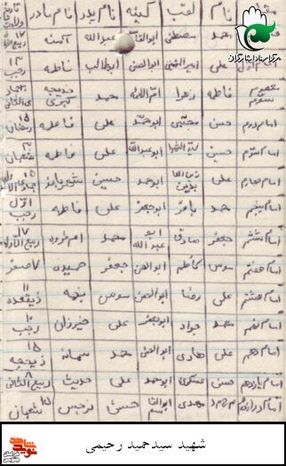 نام لقب کنیه نام پدر نام مادر
محمد مصطفی ابوالقاسم عبدالله آمنه ۱۷ ربیع الاول
امام اول علی امیرالمؤمنین ابوالحسن ابوطالب فاطمه ۱۳ رجب
معصوم سوم فاطمه زهرا محمد خدیجه کبری
امام دوم حسن مجتبی ابومحمد علی فاطمه ۱۵ رمضان
امام سوم حسین سیدالشهدا ابوعبدالله علی فاطمه ۳ شعبان
امام چهارم علی زین العابدین ابومحمد حسین شهربانو
امام پنجم محمد باقر ابوجعفر علی فاطمه اول رجب
امام ششم جعفر صادق ابو عبدالله محمد ام فروه ۱۷ ربیع الاول
امام هفتم موسی کاظم ابوالحسن جعفر حمیده ۷ صفر
امام هشتم علی رضا ابوالحسن موسی نجمه ۱۱ ذیقعده
امام نهم محمد جواد ابوجعفر علی خیزران ۱۰ رجب
امام دهم علی هادی ابوالحسن محمد سمانه ۱۵ ذیحجه
امام یازدهم حسن عسکری ابومحمد علی حدیث ۸ ربیع الثانی
امام دوازدهم محمد مهدی ابوالقاسم حسن نرجس ۱۵ شعبان
شهید سیدحمید رحیمی